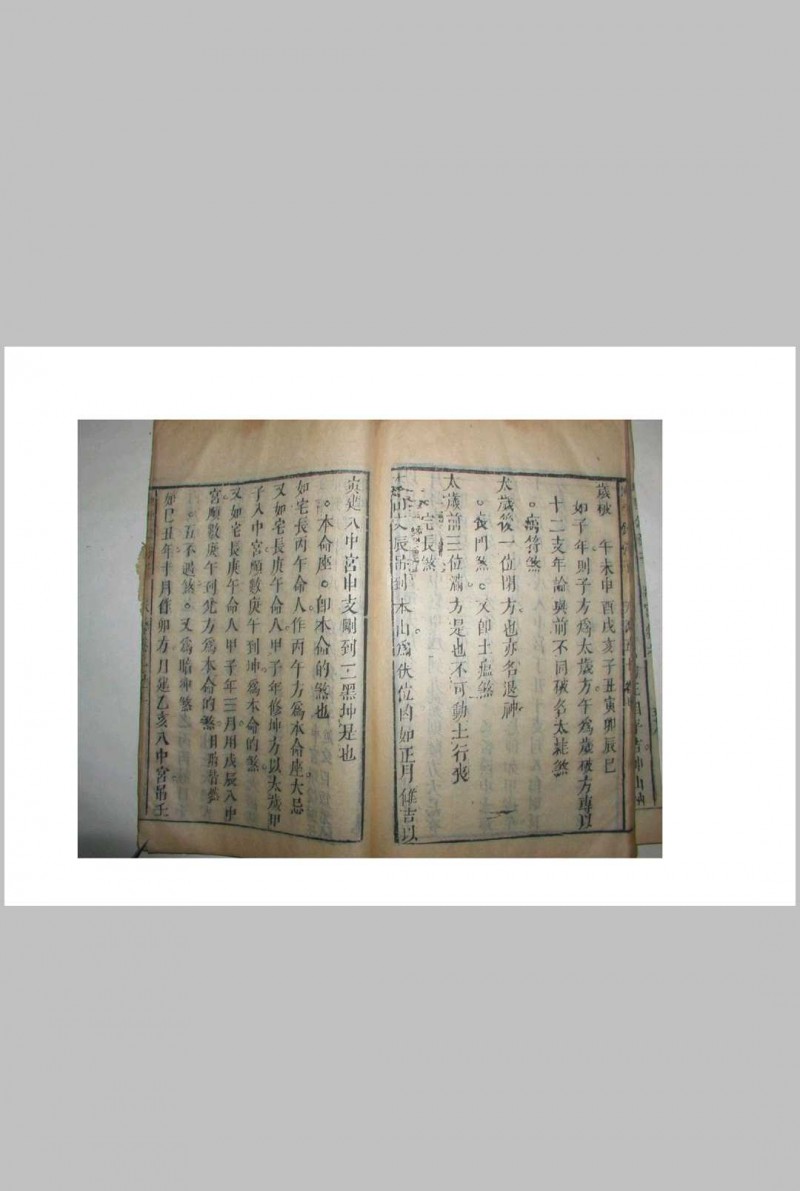 歲破　午未申酉戌亥子丑寅卯辰巳
如子年則子方為太歲方午為歲破方專以
十二支年論與前不同破名太耗煞
。病符煞
太歲後一位閉方也亦名退神
。喪門煞。又即土瘟煞
太歲前三位滿方是也不可動土行喪
。宅長煞
支辰吊到本山為伏位凶如正月修吉以
寅建入中宮申支剛到二黑坤是也
。本命座。即本命的煞也
如宅長丙午命人作丙午方為本命座大忌
又如宅長庚午命入甲子年修坤方以太歲甲
子入中宮順數庚午到坤為本命的煞
又如宅長庚午命人甲子年三月用戊辰入中
宮順數庚午到兌方為本命的煞
。五不遇煞。又為暗神煞
如巳丑年十月作卯方月建乙亥入中宮吊壬